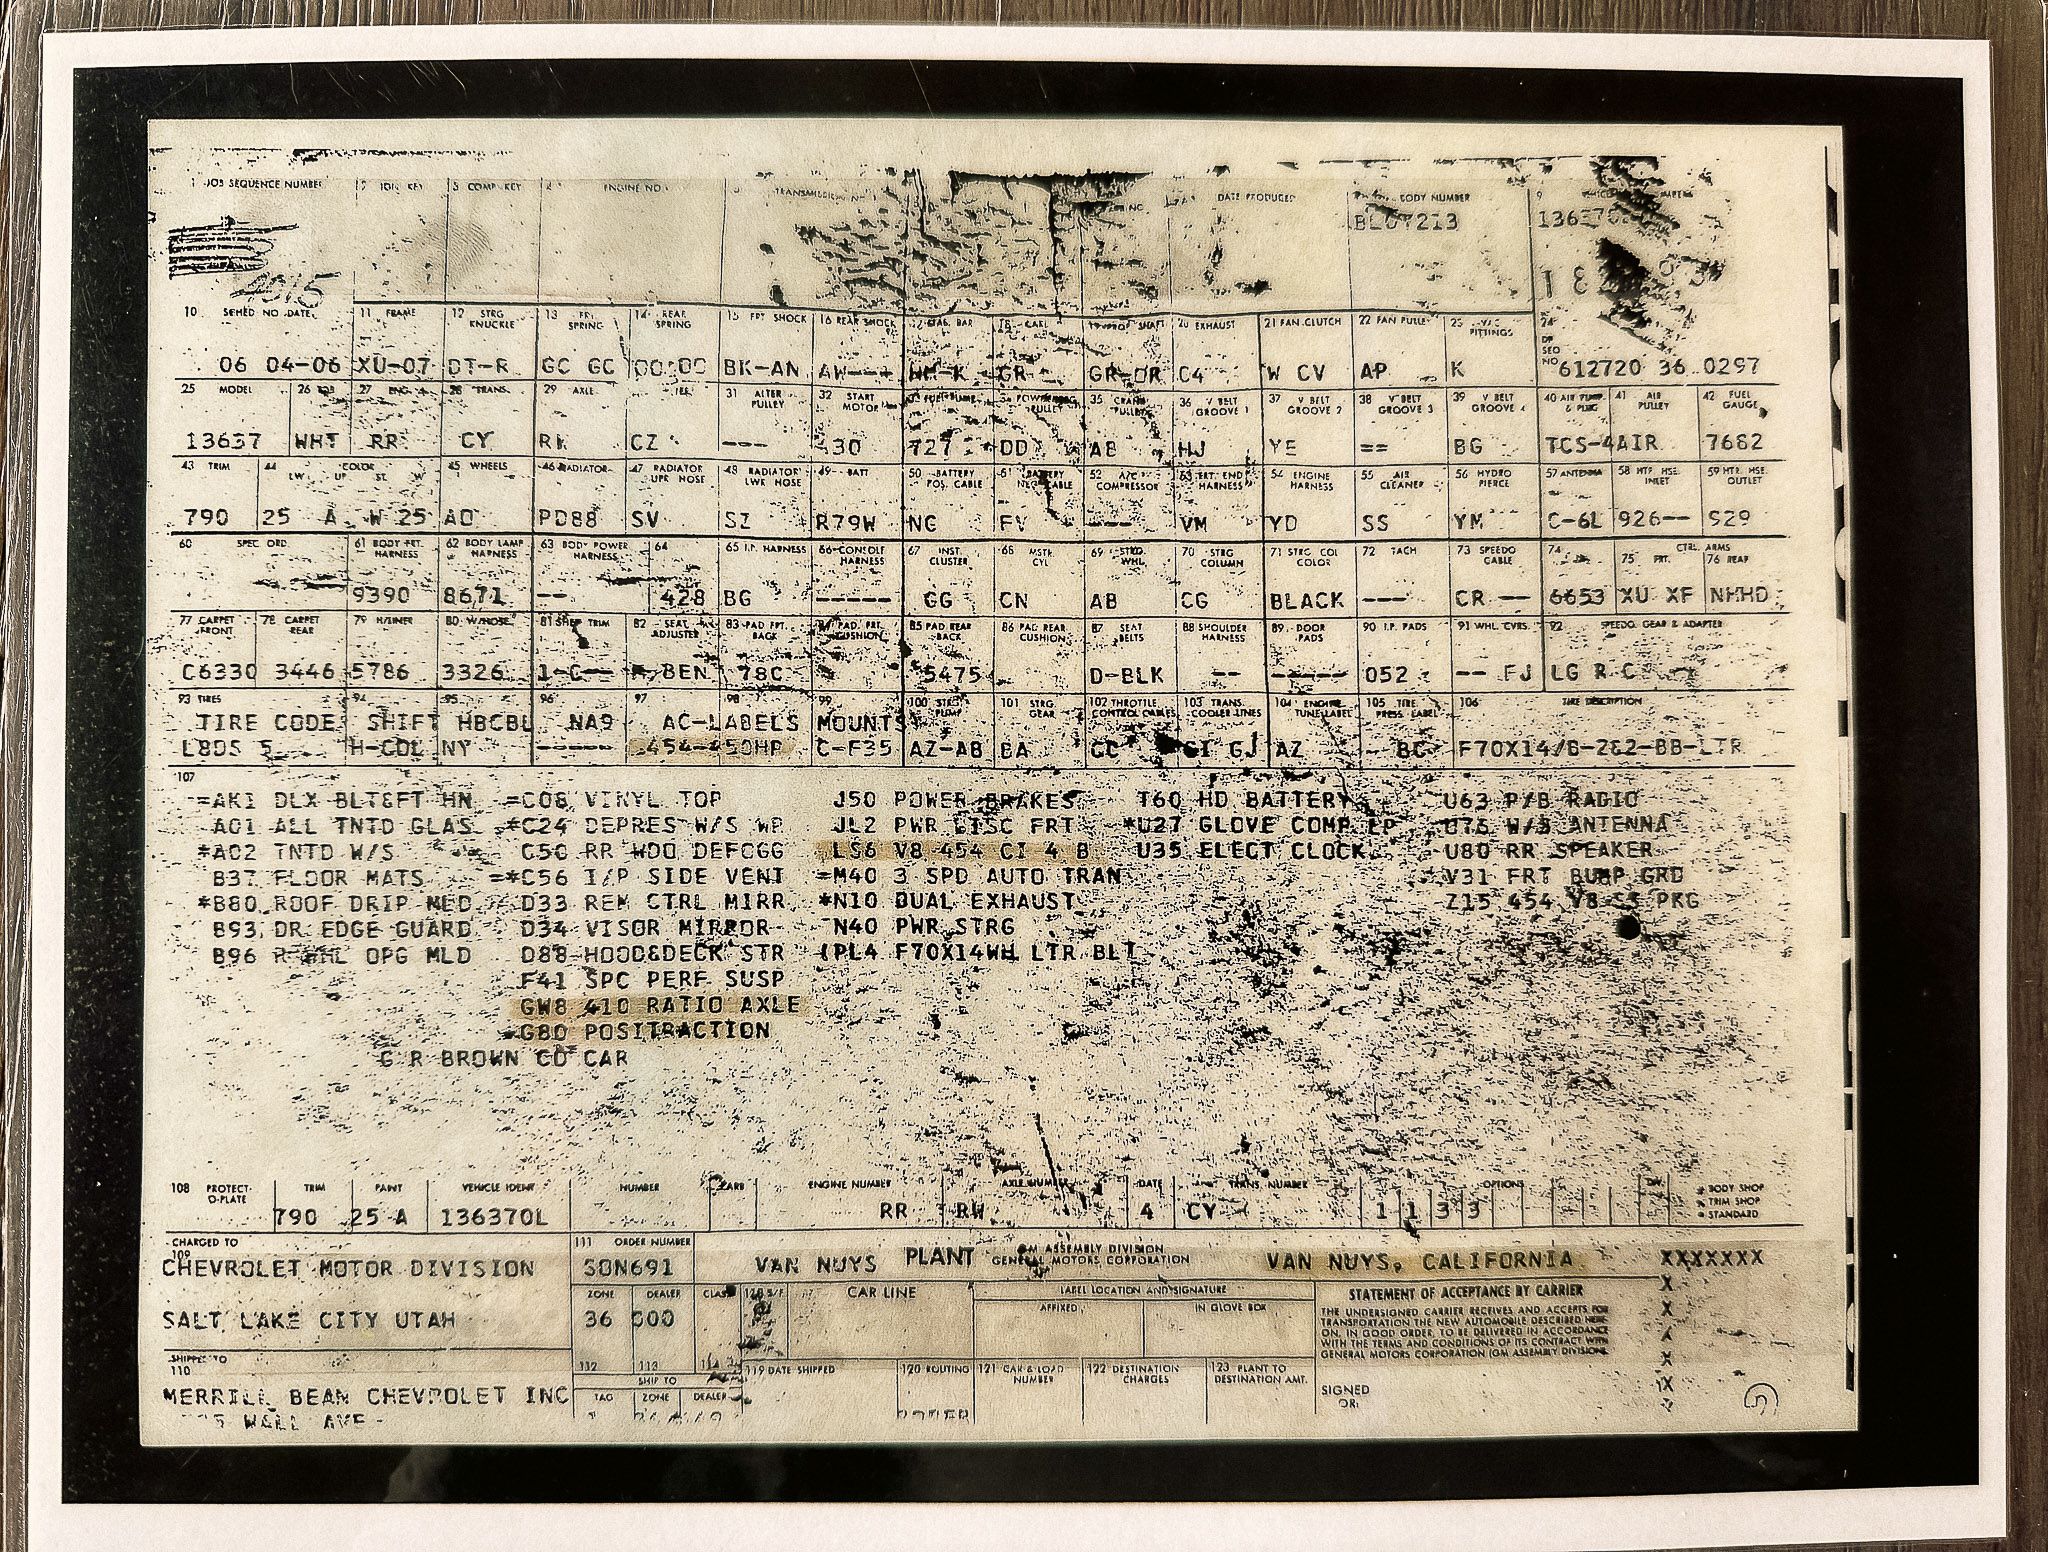 1 JOB SEQUENCE NUMBER 2 ION KEY 3 COMP KEY ENGINE NO. DATE PRODUCED BODY NUMBER 9
213 1363
4015
10 SCHED NO. DATE 11 FRAME 12 STRG KNUCKLE 13 FRT SPRING 14 REAR SPRING 15 FRT SHOCK 16 REAR SHOCK 17 STAB. BAR 20 EXHAUST 21 FAN CLUTCH 22 FAN PULLEY 23 FITTINGS 24 SEQ NO.
06 04-06 XU-07 DT-R GC GC BK-AN AW--- GR GR-DR C4 W CV AP K 612720 36 0297
25 MODEL 26 27 ENG. 28 TRANS. 29 AXLE 31 ALTER PULLEY 32 START MOTOR 35 CRANK PULLEY 36 V BELT GROOVE 1 37 V BELT GROOVE 2 38 V BELT GROOVE 3 39 V BELT GROOVE 4 40 AIR PUMP & PLBG 41 AIR PULLEY 42 FUEL GAUGE
13637 WHT RR CY CZ --- 30 727 DD AB HJ YE == BG TCS-4AIR 7682
43 TRIM 44 COLOR LW. UP ST. W 45 WHEELS 46 RADIATOR 47 RADIATOR UPR HOSE 48 RADIATOR LWR HOSE 49 BATT 50 BATTERY POS. CABLE 51 BATTERY NEG. CABLE 52 A/C COMPRESSOR 53 FRT. END HARNESS 54 ENGINE HARNESS 55 AIR CLEANER 56 HYDRO PIERCE 57 ANTENNA 58 HTR. HSE. INLET 59 HTR. HSE. OUTLET
790 25 A W 25 AO PD88 SV SZ R79W NC FV --- VM YD SS YM C-6L 926-- 929
60 SPEC. ORD. 61 BODY FRT. HARNESS 62 BODY LAMP HARNESS 63 BODY POWER HARNESS 64 65 I.P. HARNESS 66 CONSOLE HARNESS 67 INST. CLUSTER 68 MSTR. CYL 69 STRG. WHL. 70 STRG COLUMN 71 STRG COL COLOR 72 TACH 73 SPEEDO CABLE 74 CTRL. ARMS 75 FRT. 76 REAR
9390 8671 -- 428 BG ----- CG CN AB CG BLACK --- CR -- 6653 XU XF NHHD
77 CARPET FRONT 78 CARPET REAR 79 H/LINER 80 W/HOSE 81 SHFT TRIM 82 SEAT ADJUSTER 83 PAD FRT. BACK 84 PAD. FRT. CUSHION 85 PAD REAR BACK 86 PAD REAR CUSHION 87 SEAT BELTS 88 SHOULDER HARNESS 89 DOOR PADS 90 I.P. PADS 91 WHL. CVRS. 92 SPEEDO. GEAR & ADAPTER
C6330 3446 5786 3326 1-C-- BEN 78C 5475 D-BLK -- ----- 052 -- FJ LG R C
93 TIRES 94 95 96 97 98 99 100 STRG PUMP 101 STRG GEAR 102 THROTTLE CONTROL CABLES 103 TRANS. COOLER LINES 104 ENGINE TUNE LABEL 105 TIRE PRESS LABEL 106 TIRE DESCRIPTION
TIRE CODE SHIFT HBCBL NA9 AC-LABELS MOUNTS
L80S 5 H-COL NY ----- 454-450HP C-F35 AZ-AB BA CC GI GJ AZ BC F70X14/B-2&2-BB-LTR
107
=AK1 DLX BLT&FT HN =C08 VINYL TOP J50 POWER BRAKES T60 HD BATTERY U63 P/B RADIO
A01 ALL TNTD GLAS *C24 DEPRES W/S WP JL2 PWR DISC FRT *U27 GLOVE COMP LP U76 W/S ANTENNA
*A02 TNTD W/S C50 RR WDO DEFOGG LS6 V8 454 CI 4 B U35 ELECT CLOCK U80 RR SPEAKER
B37 FLOOR MATS =*C56 I/P SIDE VENT =M40 3 SPD AUTO TRAN V31 FRT BUMP GRD
*B80 ROOF DRIP MLD D33 REM CTRL MIRR *N10 DUAL EXHAUST Z15 454 V8 SS PKG
B93 DR EDGE GUARD D34 VISOR MIRROR N40 PWR STRG
B96 WHL OPG MLD D88 HOOD&DECK STR (PL4 F70X14WH LTR BLT
F41 SPC PERF SUSP
GW8 410 RATIO AXLE
*G80 POSITRACTION
G R BROWN CO CAR
108 PROTECT-O-PLATE TRIM PAINT VEHICLE IDENT NUMBER CARB ENGINE NUMBER AXLE NUMBER DATE TRANS. NUMBER OPTIONS * BODY SHOP
* TRIM SHOP
790 25 A 136370L RR RW 4 CY 1 1 3 3 * STANDARD
CHARGED TO 109 111 ORDER NUMBER
CHEVROLET MOTOR DIVISION SON691 VAN NUYS PLANT GM ASSEMBLY DIVISION GENERAL MOTORS CORPORATION VAN NUYS, CALIFORNIA XXXXXXX
ZONE DEALER CLASS CAR LINE LABEL LOCATION AND SIGNATURE STATEMENT OF ACCEPTANCE BY CARRIER X
SALT LAKE CITY UTAH 36 000 AFFIXED IN GLOVE BOX
THE UNDERSIGNED CARRIER RECEIVES AND ACCEPTS FOR
TRANSPORTATION THE NEW AUTOMOBILE DESCRIBED HERE-
ON, IN GOOD ORDER, TO BE DELIVERED IN ACCORDANCE
WITH THE TERMS AND CONDITIONS OF ITS CONTRACT WITH
GENERAL MOTORS CORPORATION (GM ASSEMBLY DIVISION).
SHIPPED TO 110 112 113 114 119 DATE SHIPPED 120 ROUTING 121 CAR & LOAD NUMBER 122 DESTINATION CHARGES 123 PLANT TO DESTINATION AMT.
SHIP TO
MERRILL BEAN CHEVROLET INC TAG ZONE DEALER SIGNED OR:
WALL AVE